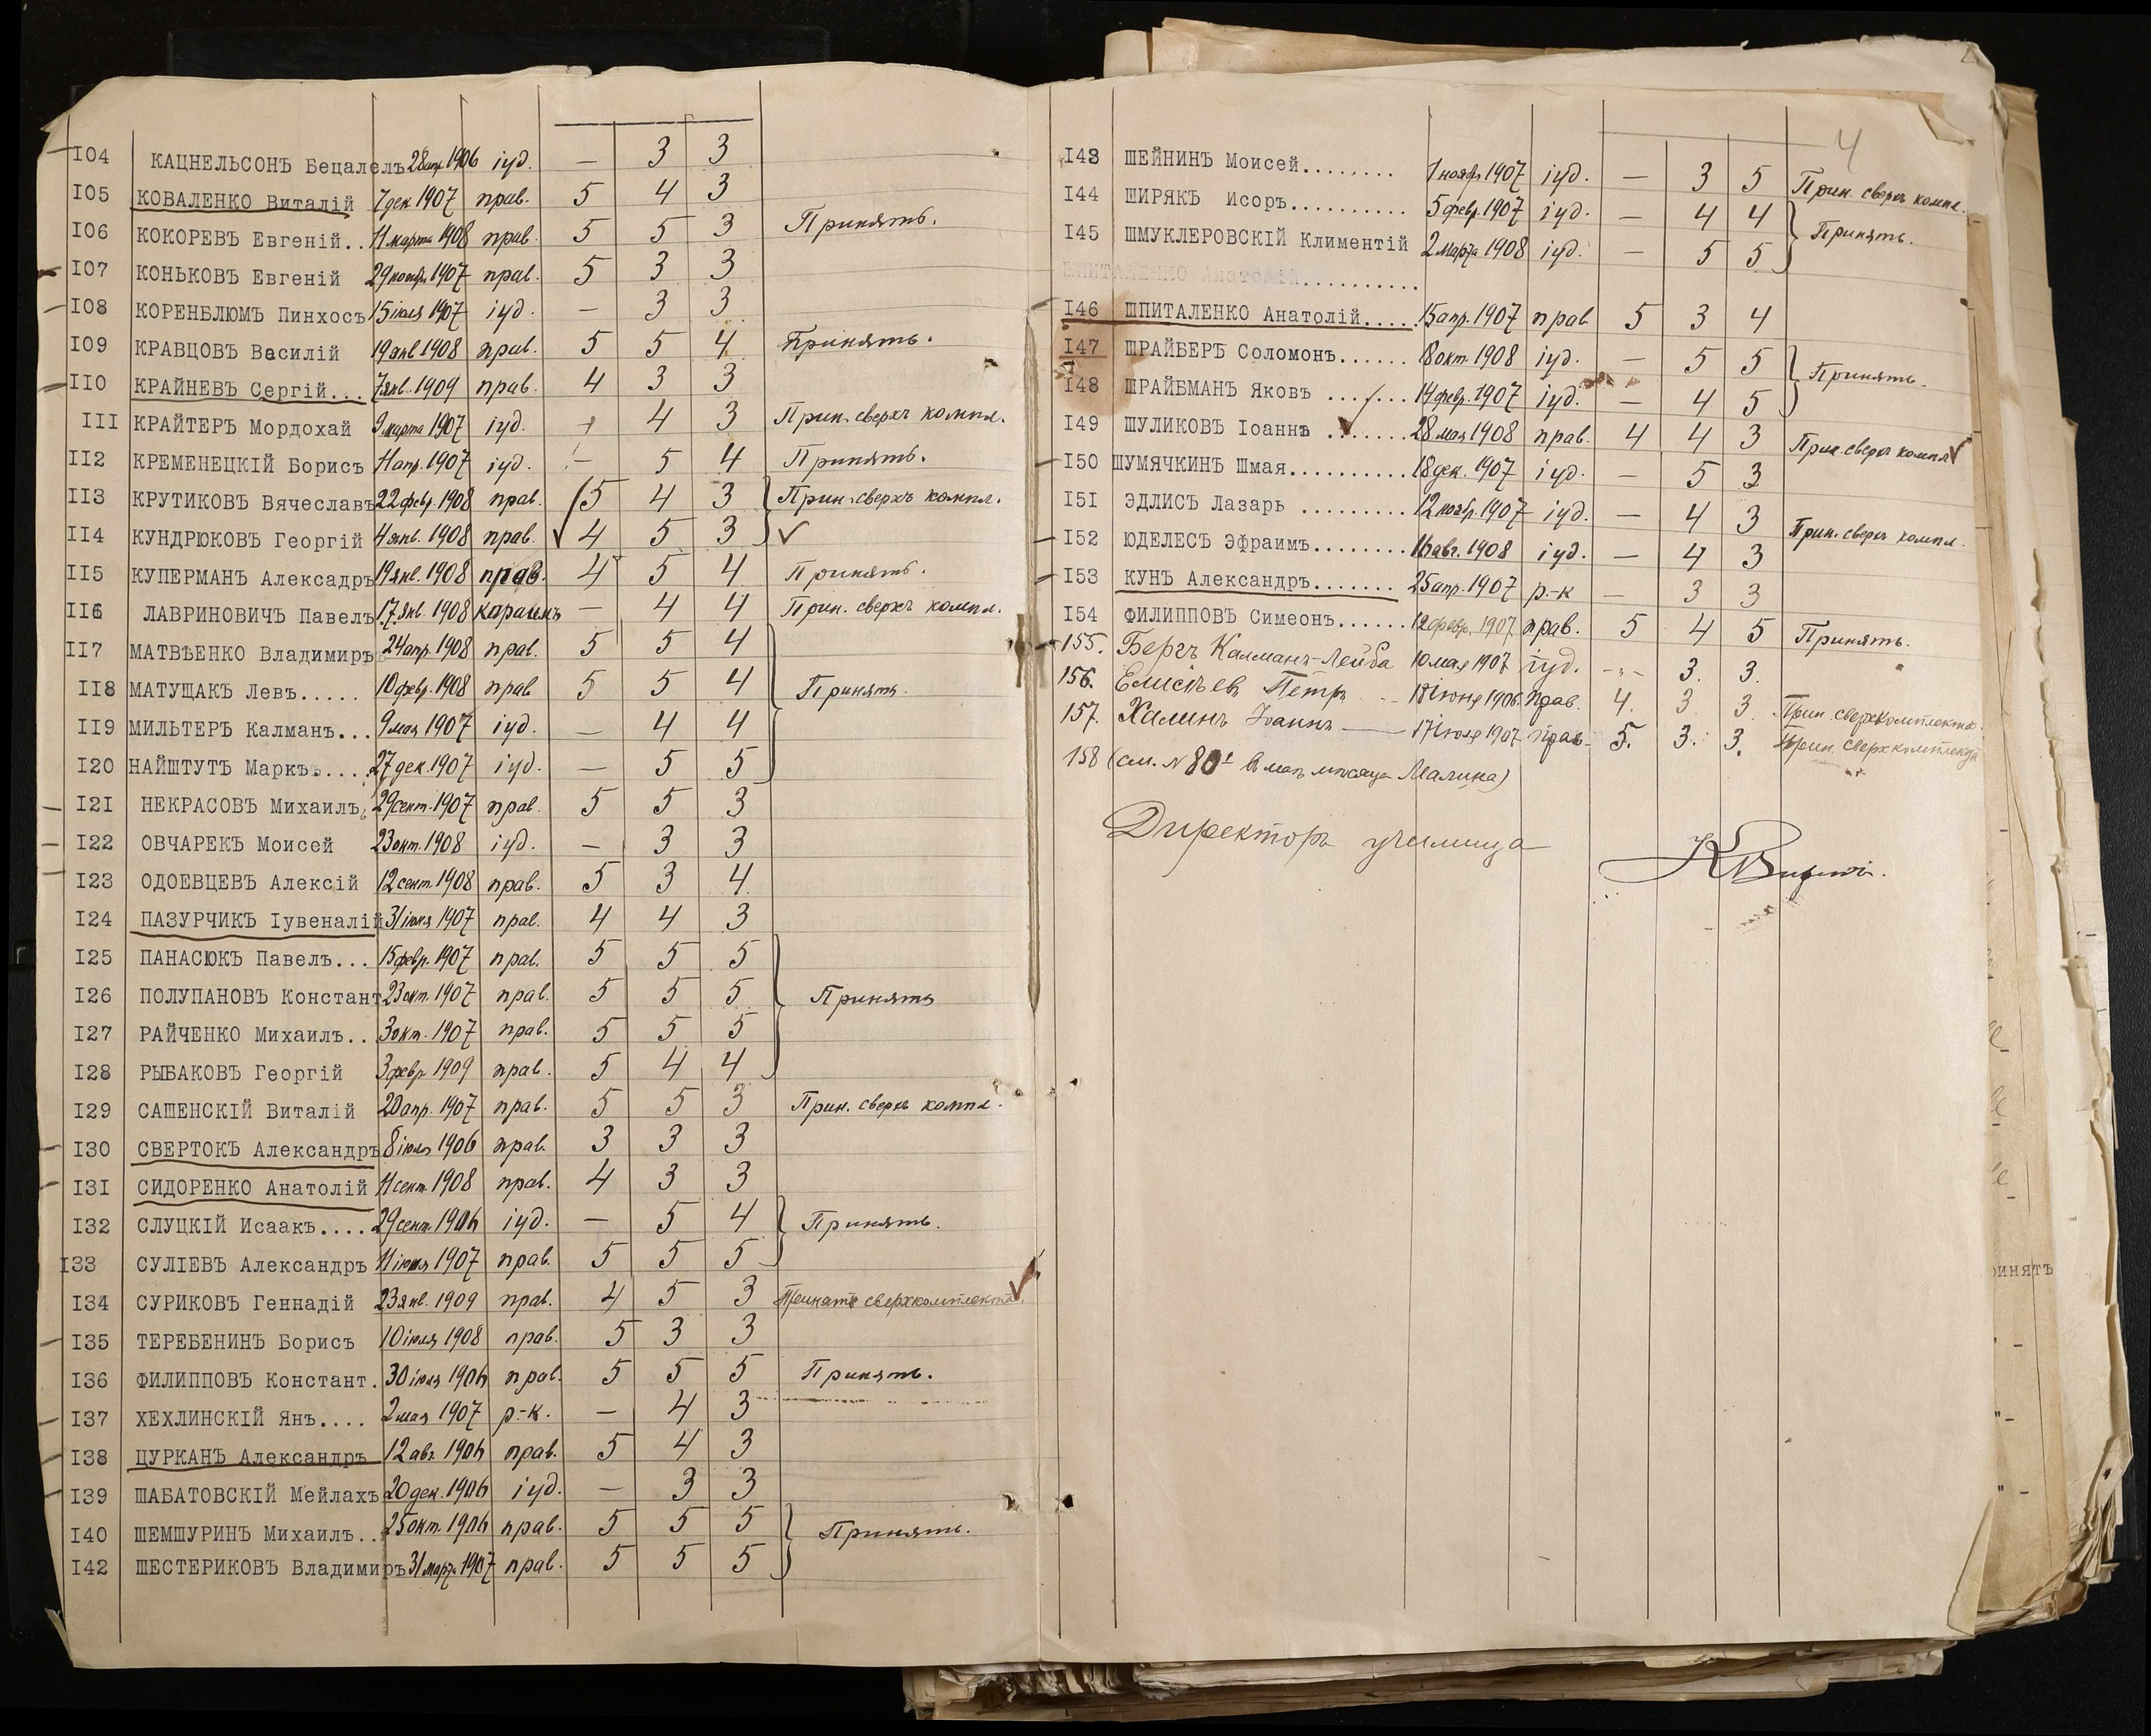 I04 КАЦНЕЛЬСОНЪ Бецалелъ 28 апр. 1906 іуд. — 3 3
I05 КОВАЛЕНКО Виталій 7 дек 1907 прав. 5 4 3
I06 КОКОРЕВЪ Евгеній.. 11 марта 1908 прав. 5 5 3 Принять.
I07 КОНЬКОВЪ Евгеній 29 нояб. 1907 прав. 5 3 3
I08 КОРЕНБЛЮМЪ Пинхосъ 15 іюля 1907 іуд. — 3 3
I09 КРАВЦОВЪ Василій 19 янв 1908 прав. 5 5 4 Принять.
II0 КРАЙНЕВЪ Сергій... 7 янв. 1909 прав. 4 3 3
III КРАЙТЕРЪ Мордохай 9 марта 1907 іуд. — 4 3 Прин. сверхъ компл.
II2 КРЕМЕНЕЦКІЙ Борисъ 11 апр. 1907 іуд. — 5 4 Принять.
II3 КРУТИКОВЪ Вячеславъ 22 февр. 1908 прав. 5 4 3 Прин. сверхъ компл.
II4 КУНДРЮКОВЪ Георгій 4 янв. 1908 прав. 4 5 3
II5 КУПЕРМАНЪ Алексадръ 19 янв. 1908 прав. 4 5 4 Принять.
II6 ЛАВРИНОВИЧЪ Павелъ 17 янв. 1908 караимъ — 4 4 Прин. сверхъ компл.
II7 МАТВѢЕНКО Владимиръ 24 апр. 1908 прав. 5 5 4
II8 МАТУЩАКЪ Левъ..... 10 февр. 1908 прав 5 5 4 Принять.
II9 МИЛЬТЕРЪ Калманъ... 9 мая 1907 іуд. — 4 4
I20 НАЙШТУТЪ Маркъ..... 27 дек. 1907 іуд. — 5 5
I2I НЕКРАСОВЪ Михаилъ 29 сент. 1907 прав. 5 5 3
I22 ОВЧАРЕКЪ Моисей 23 окт. 1908 іуд. — 3 3
I23 ОДОЕВЦЕВЪ Алексій 12 сент 1908 прав. 5 3 4
I24 ПАЗУРЧИКЪ Іувеналій 31 іюля 1907 прав. 4 4 3
I25 ПАНАСЮКЪ Павелъ... 15 февр. 1907 прав. 5 5 5
I26 ПОЛУПАНОВЪ Констант 23 окт. 1907 прав. 5 5 5 Принять
I27 РАЙЧЕНКО Михаилъ.. 3 окт. 1907 прав. 5 5 5
I28 РЫБАКОВЪ Георгій 3 февр 1909 прав. 5 4 4
I29 САШЕНСКІЙ Виталій 20 апр. 1907 прав. 5 5 3 Прин. сверхъ компл.
I30 СВЕРТОКЪ Александръ 8 іюля 1906 прав. 3 3 3
I3I СИДОРЕНКО Анатолій 11 сент 1908 прав. 4 3 3
I32 СЛУЦКІЙ Исаакъ.... 29 сент. 1906 іуд. — 5 4 Принять.
I33 СУЛІЕВЪ Александръ 11 іюля 1907 прав. 5 5 5
I34 СУРИКОВЪ Геннадій 23 янв. 1909 прав. 4 5 3 Принять сверхкомплекта.
I35 ТЕРЕБЕНИНЪ Борисъ 10 іюля 1908 прав. 5 3 3
I36 ФИЛИППОВЪ Констант. 30 іюля 1906 прав. 5 5 5 Принять.
I37 ХЕХЛИНСКІЙ Янъ.... 2 мая 1907 р.-к. — 4 3
I38 ЦУРКАНЪ Александръ 12 авг. 1906 прав. 5 4 3
I39 ШАБАТОВСКІЙ Мейлахъ 20 дек. 1906 іуд. — 3 3
I40 ШЕМШУРИНЪ Михаилъ.. 25 окт. 1906 прав. 5 5 5 Принять.
I42 ШЕСТЕРИКОВЪ Владимиръ 31 марта 1907 прав. 5 5 5
4
I43 ШЕЙНИНЪ Моисей........ 1 нояб. 1907 іуд. — 3 5 Прин. сверхъ компл.
I44 ШИРЯКЪ Исоръ.......... 5 февр. 1907 іуд. — 4 4 Принять.
I45 ШМУКЛЕРОВСКІЙ Климентій 2 марта 1908 іуд. — 5 5
ШПИТАЛЕНКО Анатолій..........
I46 ШПИТАЛЕНКО Анатолій.... 15 апр. 1907 прав 5 3 4
I47 ШРАЙБЕРЪ Соломонъ...... 18 окт. 1908 іуд. — 5 5 Принять.
I48 ШРАЙБМАНЪ Яковъ ....... 14 февр. 1907 іуд. — 4 5
I49 ШУЛИКОВЪ Іоаннъ ....... 28 мая 1908 прав. 4 4 3 Прин. сверхъ компл
I50 ШУМЯЧКИНЪ Шмая.......... 18 дек. 1907 іуд. — 5 3
I5I ЭДЛИСЪ Лазарь ......... 12 нояб. 1907 іуд. — 4 3 Прин. сверхъ компл.
I52 ЮДЕЛЕСЪ Эфраимъ........ 16 авг. 1908 іуд. — 4 3
I53 КУНЪ Александръ....... 25 апр. 1907 р.-к — 3 3
I54 ФИЛИППОВЪ Симеонъ...... 12 февр. 1907 прав. 5 4 5 Принять.
155. Бергъ Калманъ-Лейба 10 мая 1907 іуд. — 3. 3.
156. Елисѣевъ Петръ 18 іюня 1906. прав. 4. 3 3. Прин. сверхкомплекта.
157. Халинъ Іоаннъ — 17 іюля 1907 прав. 5. 3. 3. Прин. сверхкомплекта
158 (см. № 80
Директоръ училища
ринять